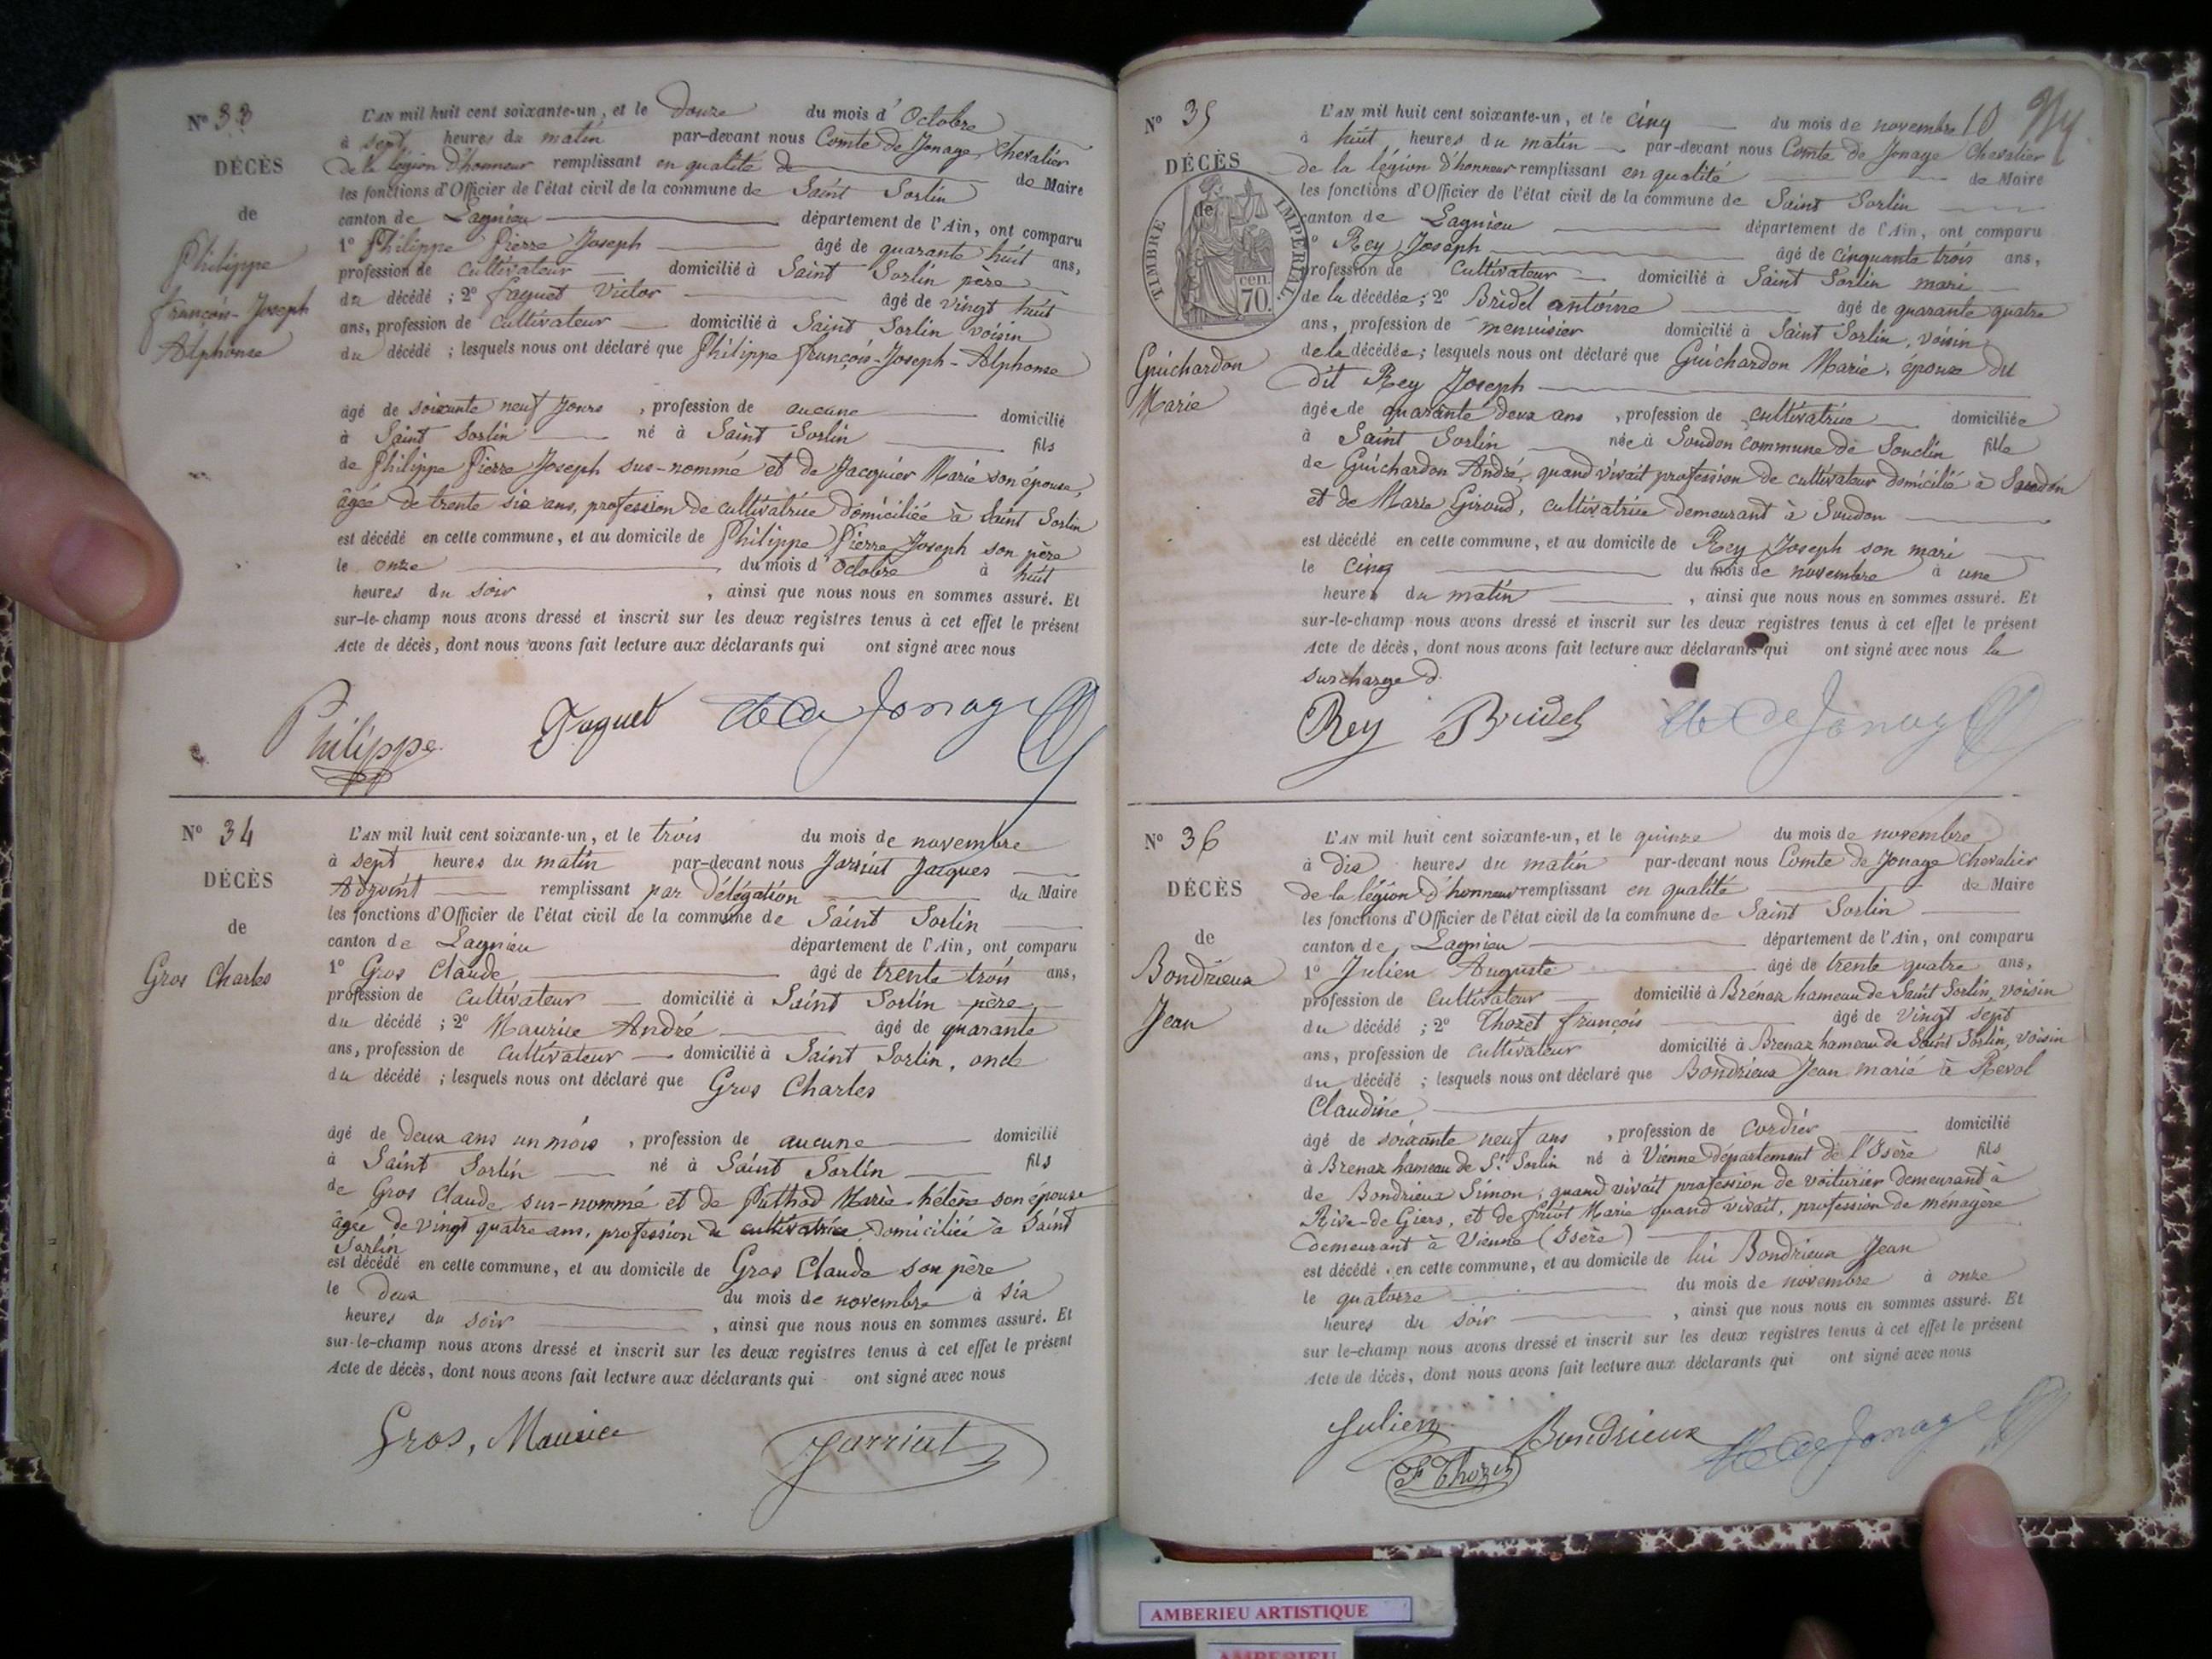 N° 33
DÉCÈS
de
Philippe
françois-Joseph
Alphonse
L'AN mil huit cent soixante-un, et le douze du mois d'Octobre
à sept heures du matin par-devant nous Comte de Jonage, chevalier
de la légion d'honneur remplissant en qualité de de Maire
les fonctions d'Officier de l'état civil de la commune de Saint Sorlin
canton de Lagnieu département de l'Ain, ont comparu
1° Philippe Pierre Joseph âgé de quarante huit ans,
profession de cultivateur domicilié à Saint Sorlin père
du décédé ; 2° faguet Victor âgé de vingt huit
ans, profession de cultivateur domicilié à Saint Sorlin voisin
du décédé ; lesquels nous ont déclaré que Philippe françois-Joseph-Alphonse
âgé de soixante neuf jours , profession de aucune domicilié
à Saint Sorlin né à Saint Sorlin fils
de Philippe Pierre Joseph sus-nommé et de Jacquier Marie son épouse,
âgée de trente six ans, profession de cultivatrice domiciliée à Saint Sorlin
est décédé en cette commune, et au domicile de Philippe Pierre Joseph son père
le onze du mois d'Octobre à huit
heures du soir , ainsi que nous nous en sommes assuré. Et
sur-le-champ nous avons dressé et inscrit sur les deux registres tenus à cet effet le présent
Acte de décès, dont nous avons fait lecture aux déclarants qui ont signé avec nous
Philippe Faguet de Jonage
N° 34
DÉCÈS
de
Gros Charles
L'AN mil huit cent soixante-un, et le trois du mois de novembre
à sept heures du matin par-devant nous Jarriut Jacques
Adjoint remplissant par délégation du Maire
les fonctions d'Officier de l'état civil de la commune de Saint Sorlin
canton de Lagnieu département de l'Ain, ont comparu
1° Gros Claude âgé de trente trois ans,
profession de cultivateur domicilié à Saint Sorlin père
du décédé ; 2° Maurice André âgé de quarante
ans, profession de cultivateur domicilié à Saint Sorlin, oncle
du décédé ; lesquels nous ont déclaré que Gros Charles
âgé de deux ans un mois , profession de aucune domicilié
à Saint Sorlin né à Saint Sorlin fils
de Gros Claude sus-nommé et de Puthod Marie hélène son épouse
âgée de vingt quatre ans, profession de cultivatrice domiciliée à Saint
Sorlin
est décédé en cette commune, et au domicile de Gros Claude son père
le deux du mois de novembre à six
heures du soir , ainsi que nous nous en sommes assuré. Et
sur-le-champ nous avons dressé et inscrit sur les deux registres tenus à cet effet le présent
Acte de décès, dont nous avons fait lecture aux déclarants qui ont signé avec nous
Gros, Maurice Jarriut
N° 35
DÉCÈS
de
TIMBRE IMPÉRIAL
70 cen.
Guichardon
Marie
10
L'AN mil huit cent soixante-un, et le cinq du mois de novembre
à huit heures du matin par-devant nous Comte de Jonage Chevalier
de la légion d'honneur remplissant en qualité de Maire
les fonctions d'Officier de l'état civil de la commune de Saint Sorlin
canton de Lagnieu département de l'Ain, ont comparu
1° Rey Joseph âgé de cinquante trois ans,
profession de cultivateur domicilié à Saint Sorlin mari
de la décédée ; 2° Bridel antoine âgé de quarante quatre
ans, profession de menuisier domicilié à Saint Sorlin, voisin
de la décédée ; lesquels nous ont déclaré que Guichardon Marie, épouse du
dit Rey Joseph
âgée de quarante deux ans , profession de cultivatrice domiciliée
à Saint Sorlin née à Soudon commune de Souclin fille
de Guichardon André, quand vivait profession de cultivateur domicilié à Soudon
et de Marie Giroud, cultivatrice demeurant à Soudon
est décédé en cette commune, et au domicile de Rey Joseph son mari
le cinq du mois de novembre à une
heures du matin , ainsi que nous nous en sommes assuré. Et
sur-le-champ nous avons dressé et inscrit sur les deux registres tenus à cet effet le présent
Acte de décès, dont nous avons fait lecture aux déclarants qui ont signé avec nous la
surcharge d.
Rey Bridel de Jonage
N° 36
DÉCÈS
de
Bondrieux
Jean
L'AN mil huit cent soixante-un, et le quinze du mois de novembre
à dix heures du matin par-devant nous Comte de Jonage Chevalier
de la légion d'honneur remplissant en qualité de Maire
les fonctions d'Officier de l'état civil de la commune de Saint Sorlin
canton de Lagnieu département de l'Ain, ont comparu
1° Julien Auguste âgé de trente quatre ans,
profession de cultivateur domicilié à Brénaz hameau de Saint Sorlin, voisin
du décédé ; 2° Thozet françois âgé de vingt sept
ans, profession de cultivateur domicilié à Brenaz hameau de Saint Sorlin, voisin
du décédé ; lesquels nous ont déclaré que Bondrieux Jean marié à Revol
Claudine
âgé de soixante neuf ans , profession de cordier domicilié
à Brenaz hameau de St Sorlin né à Vienne département de l'Isère fils
de Bondrieux Simon, quand vivait profession de voiturier demeurant à
Rive-de Giers, et de friot Marie quand vivait, profession de ménagère
demeurant à Vienne (Isère)
est décédé en cette commune, et au domicile de lui Bondrieux Jean
le quatorze du mois de novembre à onze
heures du soir , ainsi que nous nous en sommes assuré. Et
sur le-champ nous avons dressé et inscrit sur les deux registres tenus à cet effet le présent
Acte de décès, dont nous avons fait lecture aux déclarants qui ont signé avec nous
Julien Bondrieux de Jonage
F Thozet
AMBERIEU ARTISTIQUE
AMBERIEU